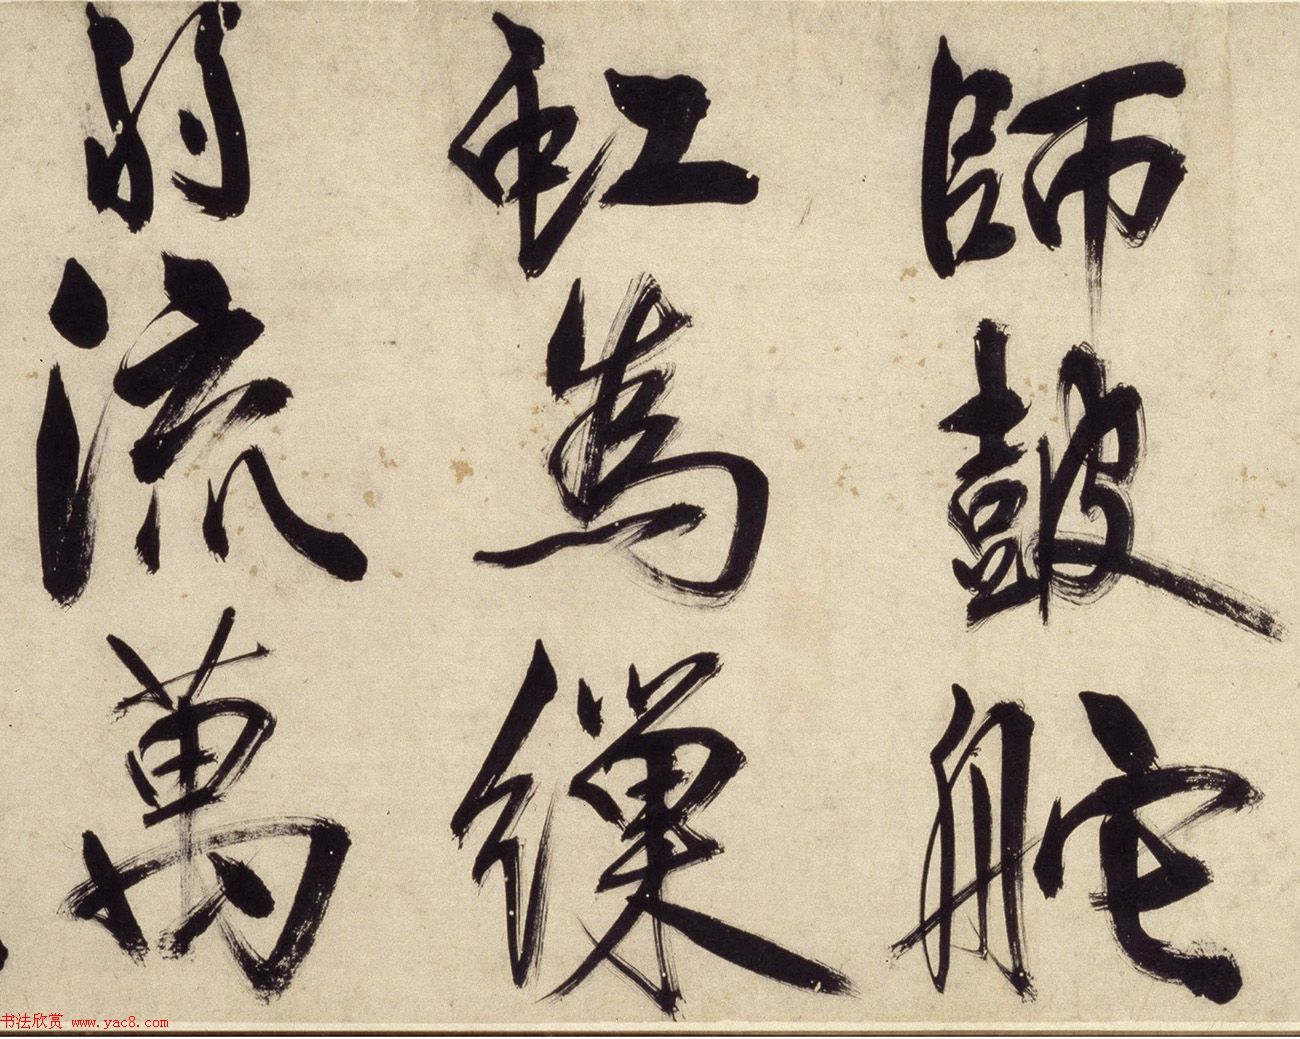 師皷舵
虹為繅
弱流萬
书法欣赏 www.yac8.com